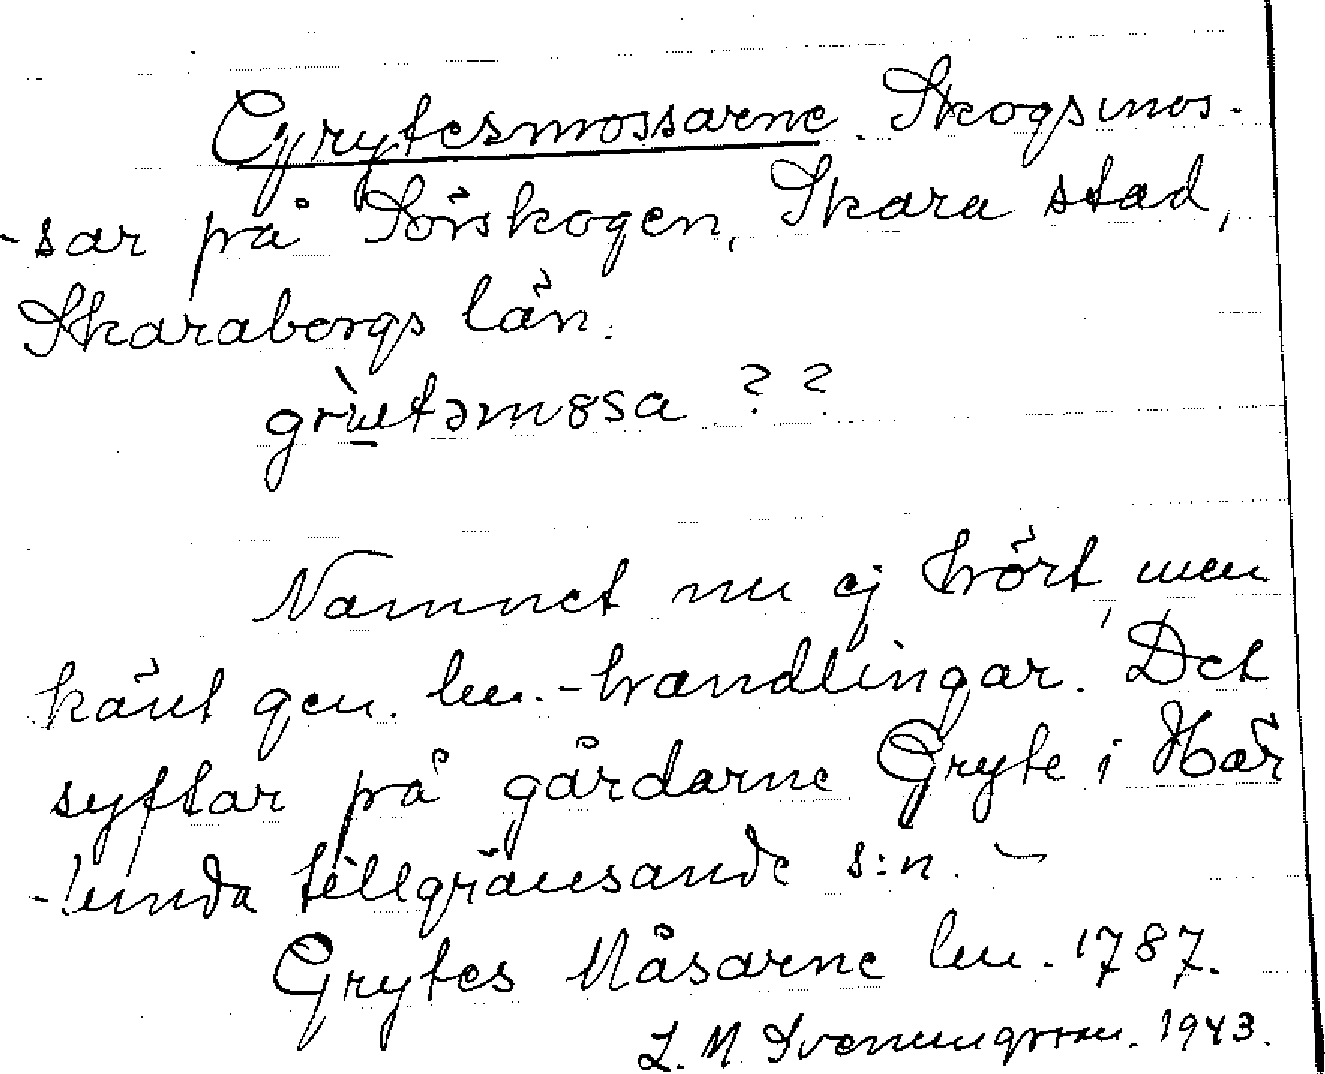 Grytesmossarne. Skogsmos-
-sar på Sörskogen, Skara stad,
Skaraborgs län.
grùtəm8sa ??
Namnet nu ej hört, men
känt gen. lm.-handlingar. Det
syftar på gårdarne Gryte i Här
-lunda tillgränsande s:n. -
Grytes Måsarne lm. 1787.
L. M. Svenungsson. 1943.